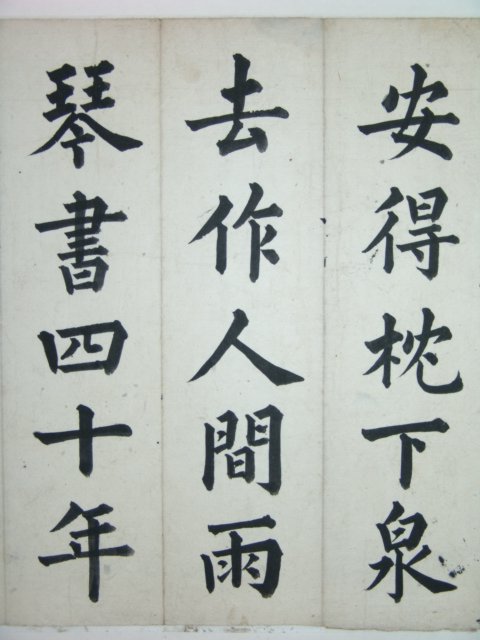 安得枕下泉
去作人間雨
琴書四十年